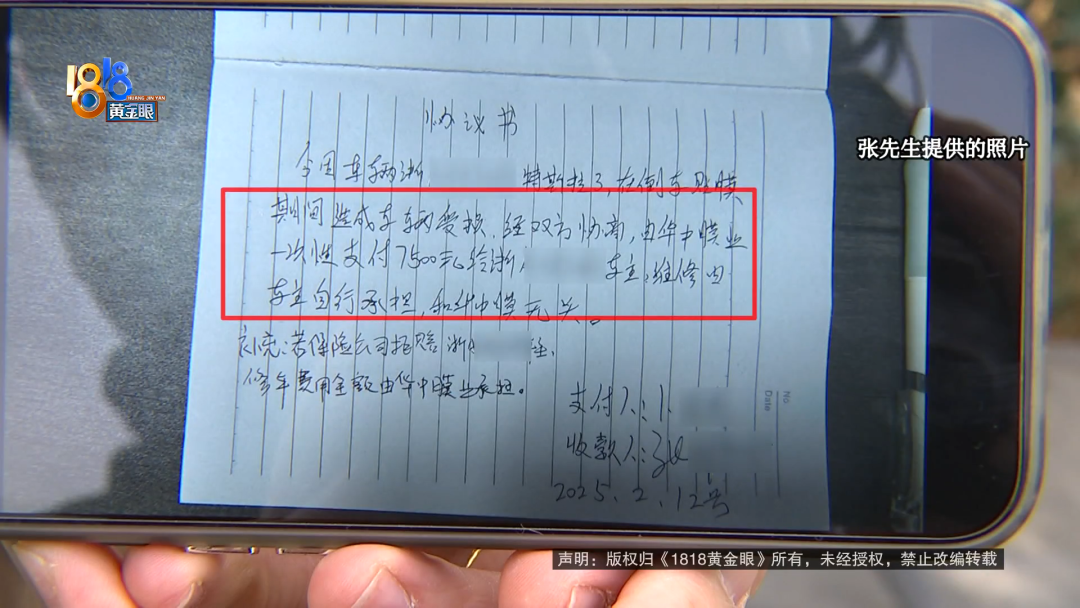 1818
HUANG JIN YAN
黄金眼
张先生提供的照片
协议书
今因车辆浙 特斯拉3,在倒车贴膜
期间造成车辆受损,经双方协商,由华中膜业
一次性支付7500元给浙 车主,维修由
车主自行承担,和华中膜无关。
补充:若保险公司拒赔浙
修车费用全额由华中膜业承担。
支付人:
收款人:张
2025.2.12号
No.
Date
声明:版权归《1818黄金眼》所有,未经授权,禁止改编转载